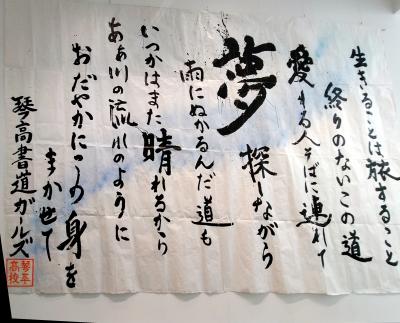 生きることは旅すること
終りのないこの道
愛する人そばに連れて
夢
探しながら
雨にぬかるんだ道も
いつかはまた晴れるから
あぁ川の流れのように
おだやかにこの身を
まかせて
琴高書道ガールズ
琴平
高校